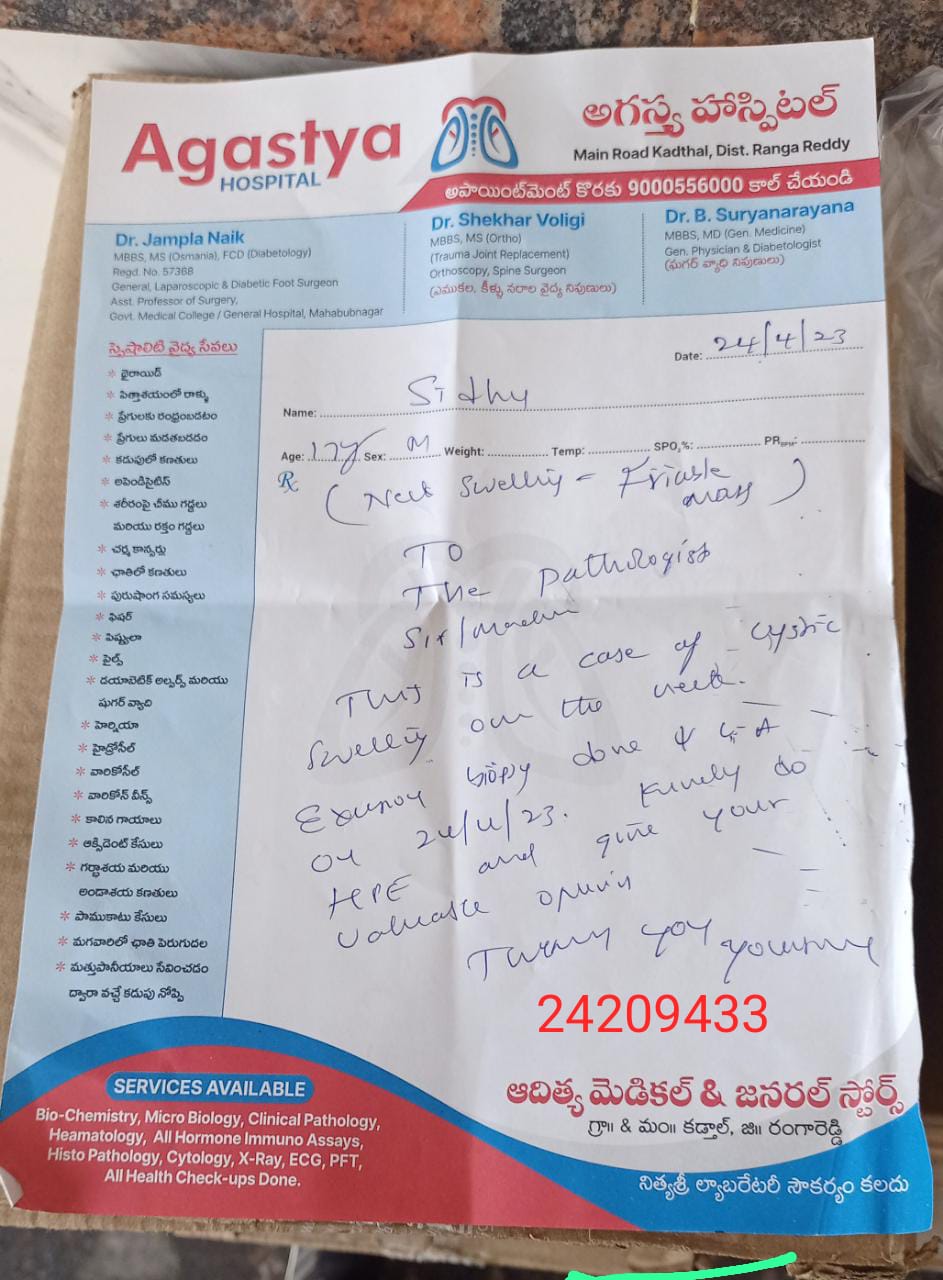 Agastya
HOSPITAL
అగస్త్య హాస్పిటల్
Main Road Kadthal, Dist. Ranga Reddy
అపాయింట్‌మెంట్ కొరకు 9000556000 కాల్ చేయండి
Dr. Jampla Naik
MBBS, MS (Osmania), FCD (Diabetology)
Regd. No. 57368
General, Laparoscopic & Diabetic Foot Surgeon
Asst. Professor of Surgery,
Govt. Medical College / General Hospital, Mahabubnagar
Dr. Shekhar Voligi
MBBS, MS (Ortho)
(Trauma Joint Replacement)
Orthoscopy, Spine Surgeon
(ఎముకల, కీళ్ళు నరాల వైద్య నిపుణులు)
Dr. B. Suryanarayana
MBBS, MD (Gen. Medicine)
Gen. Physician & Diabetologist
(షుగర్ వ్యాధి నిపుణులు)
స్పెషాలిటి వైద్య సేవలు
* థైరాయిడ్
* పిత్తాశయంలో రాళ్ళు
* ప్రేగులకు రంధ్రంబడటం
* ప్రేగులు మడతబడడం
* కడుపులో కణతులు
* అపెండిసైటిస్
* శరీరంపై చీము గడ్డలు
మరియు రక్తం గడ్డలు
* చర్మ కాన్సర్లు
* ఛాతిలో కణతులు
* పురుషాంగ సమస్యలు
* ఫిషర్
* పిష్టులా
* పైల్స్
* డయాబెటిక్ అల్సర్స్ మరియు
షుగర్ వ్యాది
* హెర్నియా
* హైడ్రోసీల్
* వారికోసీల్
* వారికోస్ వీన్స్
* కాలిన గాయాలు
* ఆక్సిడెంట్ కేసులు
* గర్భాశయ మరియు
అండాశయ కణతులు
* పాముకాటు కేసులు
* మగవారిలో ఛాతి పెరుగుదల
* మత్తుపానీయాలు సేవించడం
ద్వారా వచ్చే కడుపు నోప్పి
Date: 24/4/23
Name: Sidhy
Age: 17y Sex: M Weight: Temp: SPO₂%: PR BPM:
Rx
(Neck Swelling = Friable
mass)
TO
The pathologist
Sir/Madam
This is a case of cystic
swelling on the neck.
biopsy done
on 24/4/23. Kindly do
HPE and give your
valuable opinion
Thank you
24209433
SERVICES AVAILABLE
Bio-Chemistry, Micro Biology, Clinical Pathology,
Heamatology, All Hormone Immuno Assays,
Histo Pathology, Cytology, X-Ray, ECG, PFT,
All Health Check-ups Done.
ఆదిత్య మెడికల్ & జనరల్ స్టోర్స్
గ్రా॥ & మం॥ కడ్తాల్, జి॥ రంగారెడ్డి
నిత్యశ్రీ ల్యాబరేటరీ సౌకర్యం కలదు